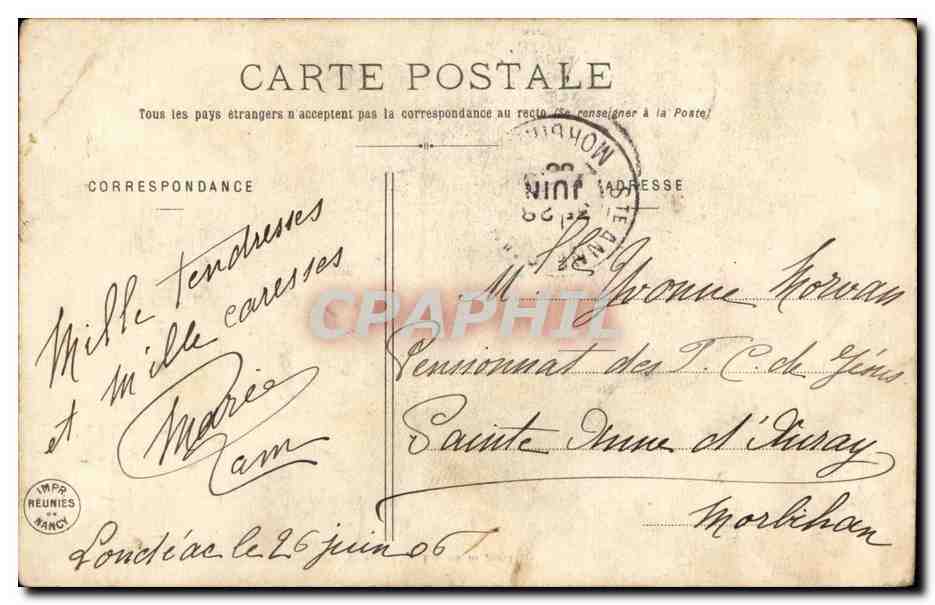 CARTE POSTALE
Tous les pays étrangers n'acceptent pas la correspondance au recto (Se renseigner à la Poste)
CORRESPONDANCE
ADRESSE
STE ANNE
MORBIHAN
28
JUIN
06
Mille tendresses
et mille caresses
Marie
Loudéac le 26 juin 06
Mlle Yvonne Morvan
Pensionnat des F. C. de Jésus
Sainte Anne d'Auray
Morbihan
IMPR
REUNIES
DE
NANCY
CPAPHIL